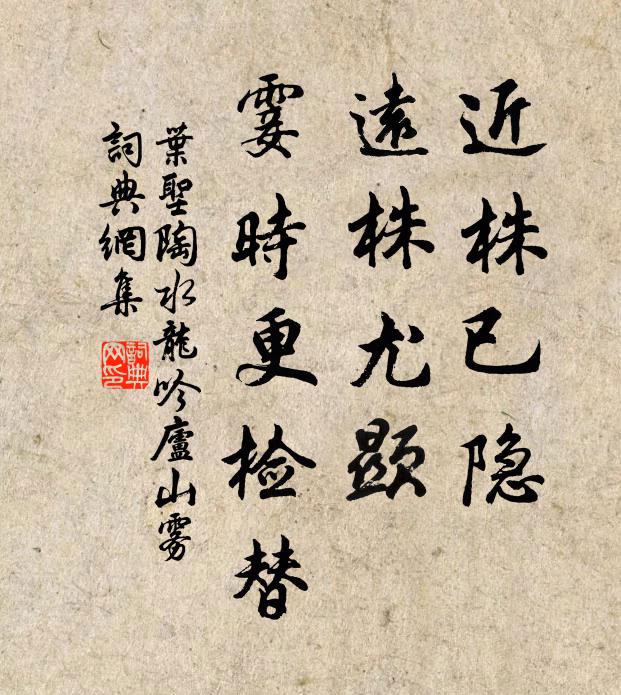 近株已隐
遠株尤顯
霎時更检替
葉聖陶水龍吟廬山雾
詞典網集
詞典
网印